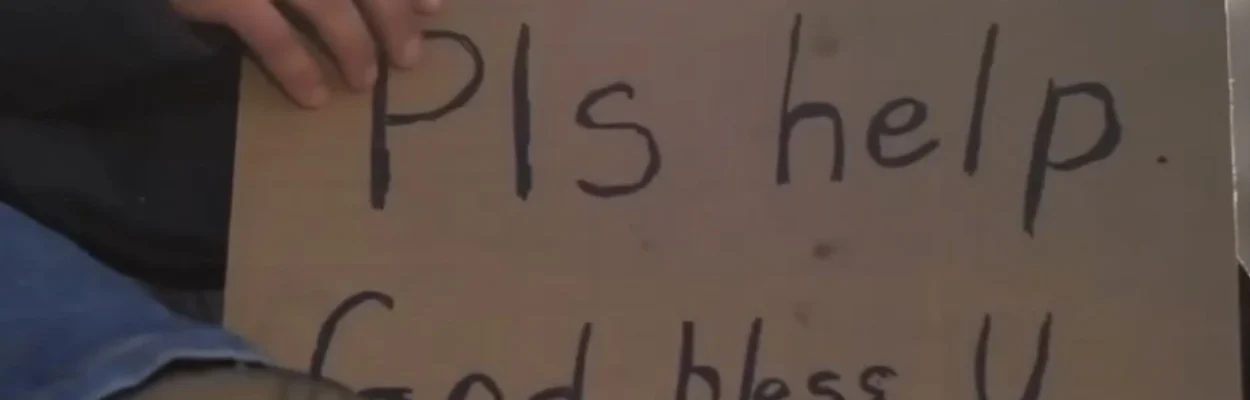 Pls help.
God bless U